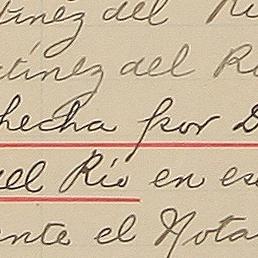 tínez del Rí
tínez del Rí
hecha por D
del Río en es
ente el Nota